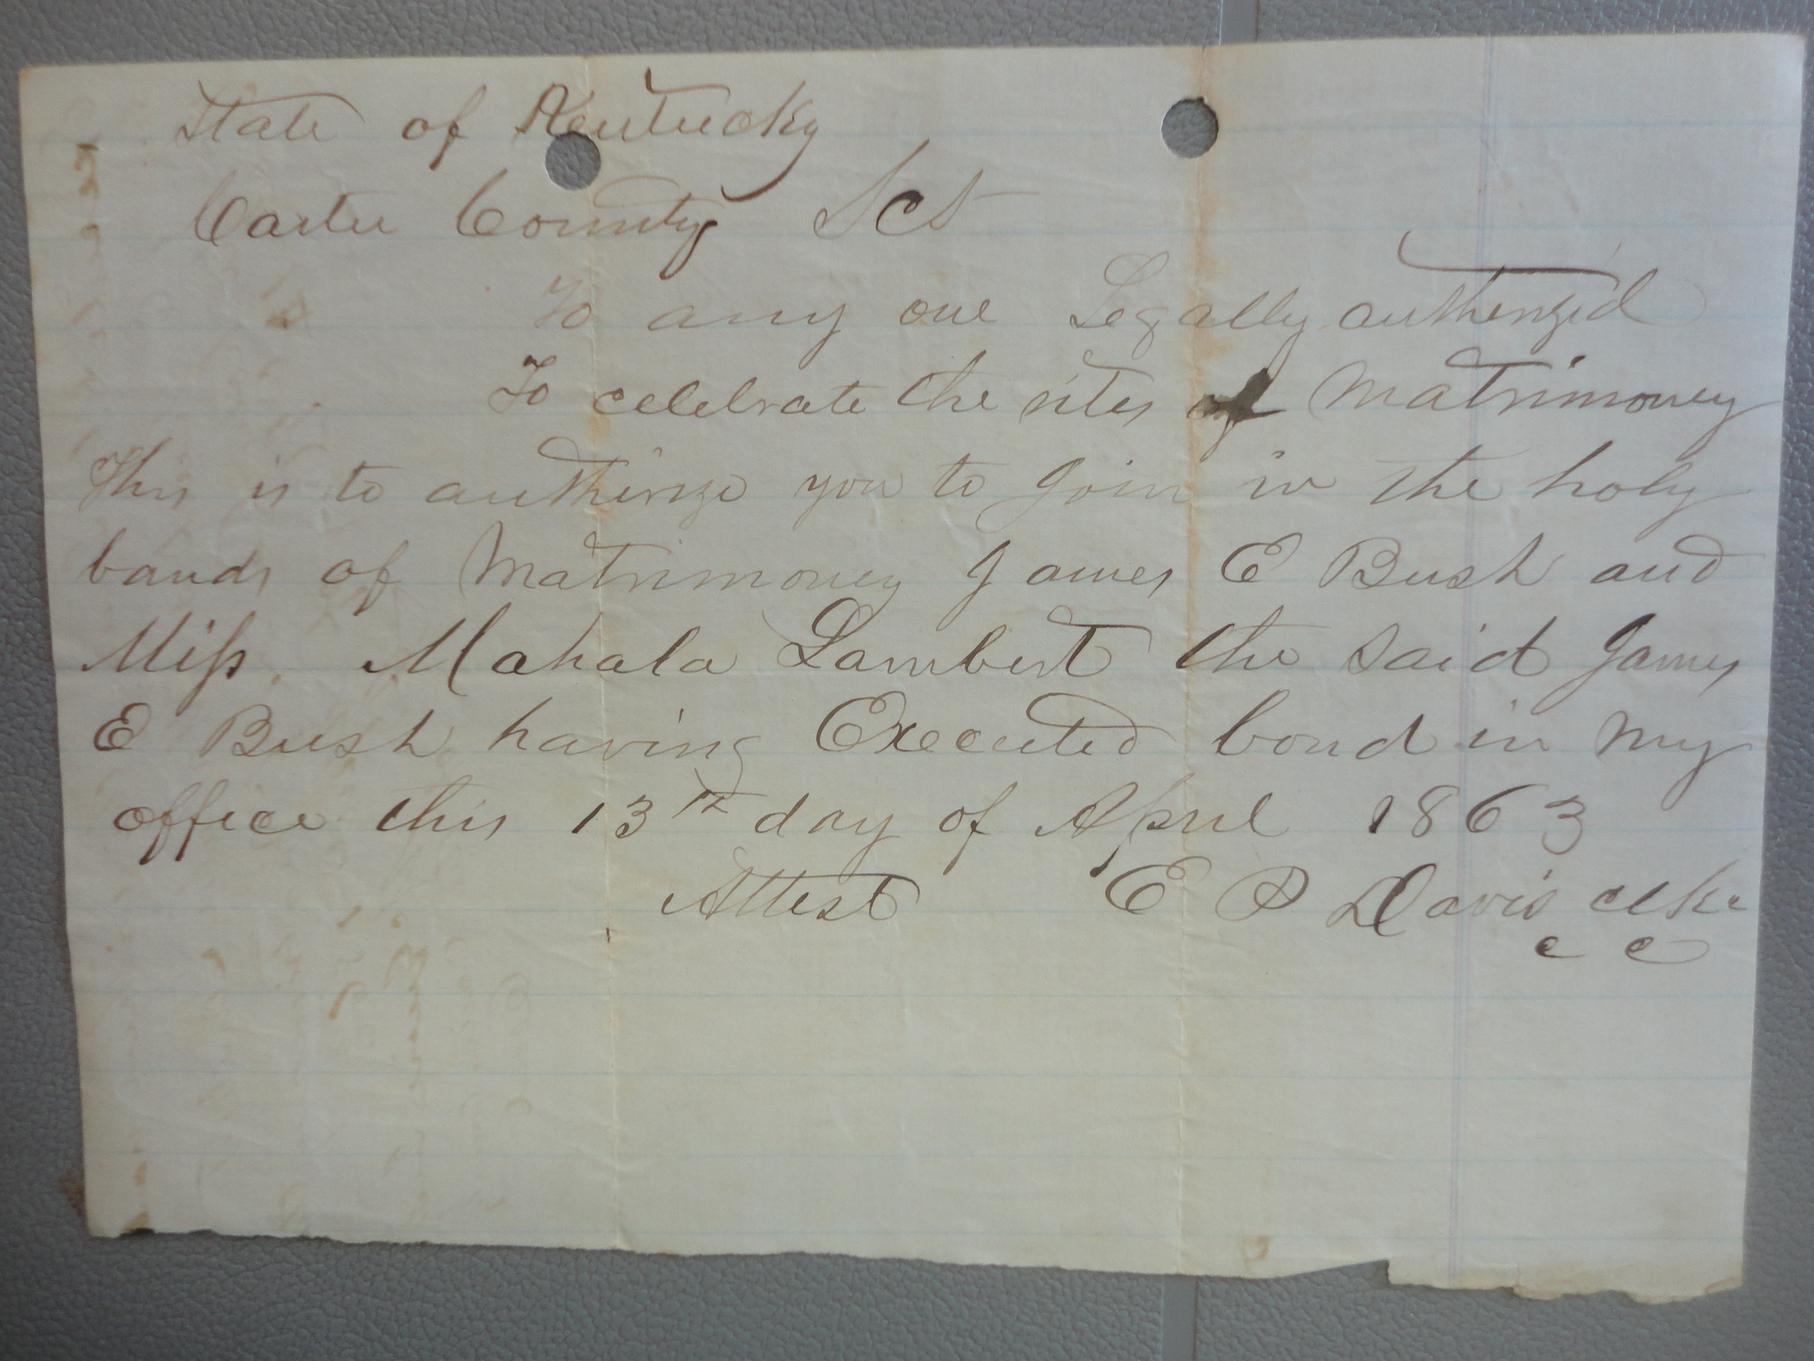 State of Kentucky
Carter County Sct
To any one Legally autherized
To celebrate the rites of Matrimoney
This is to autherize you to join in the holy
bands of Matrimoney James E Bush and
Miss. Mahala Lambert the said James
E Bush having Executed bond in my
office this 13th day of April 1863
Attest E P Davis clk.
c c